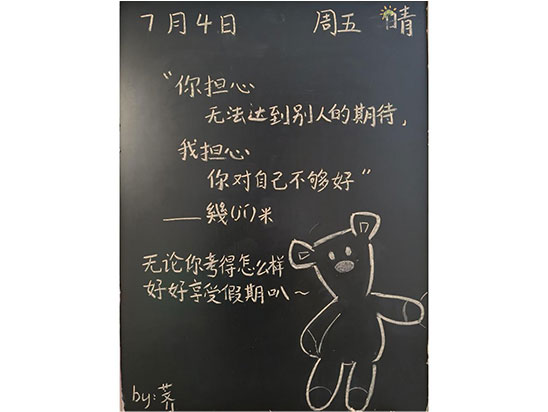 7月4日 周五 晴
“你担心
无法达到别人的期待，
我担心
你对自己不够好”
——幾(jǐ)米
无论你考得怎么样
好好享受假期叭～
by:荠